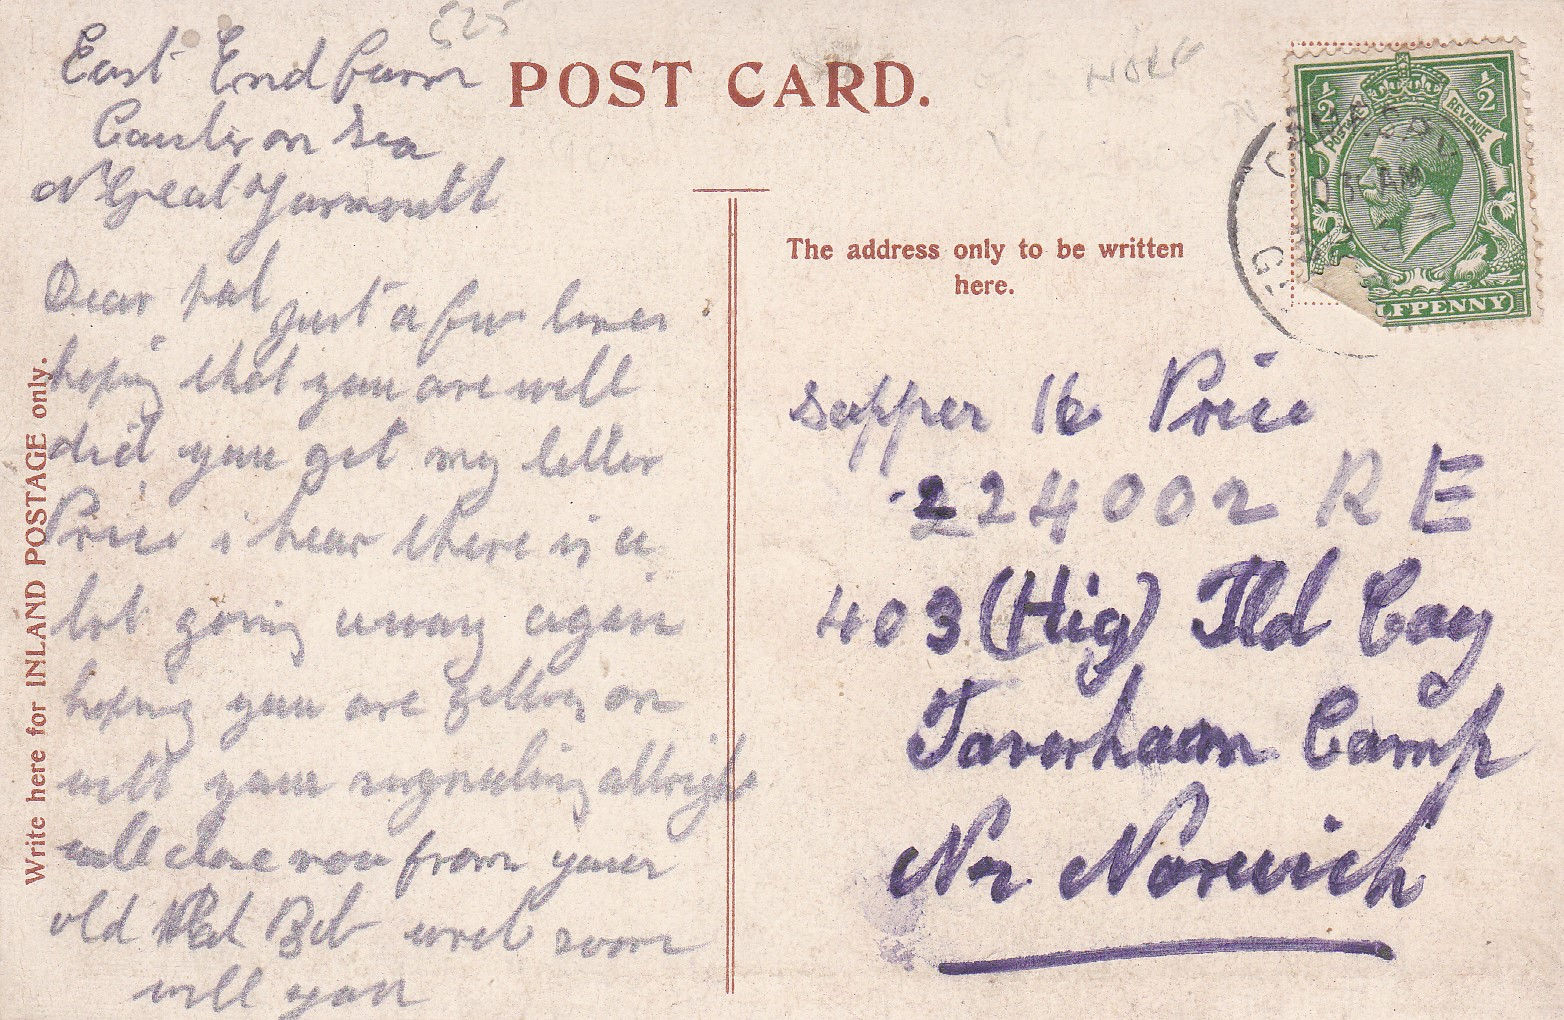 525
East End Farm
Caister on Sea
Nr Great Yarmouth
Dear pal just a few lines
hoping that you are well
did you get my letter
Price i hear there is a
lot going away again
hoping you are getting on
with your signaling allright
will close now from your
old Pal Bob wret soon
will you
Write here for INLAND POSTAGE only.
POST CARD.
NORF
The address only to be written
here.
½ ½
POSTAGE REVENUE
LFPENNY
AM
Sapper H Price
224002 R E
403 (Hig) Fld Coy
Taverham Camp
Nr Norwich